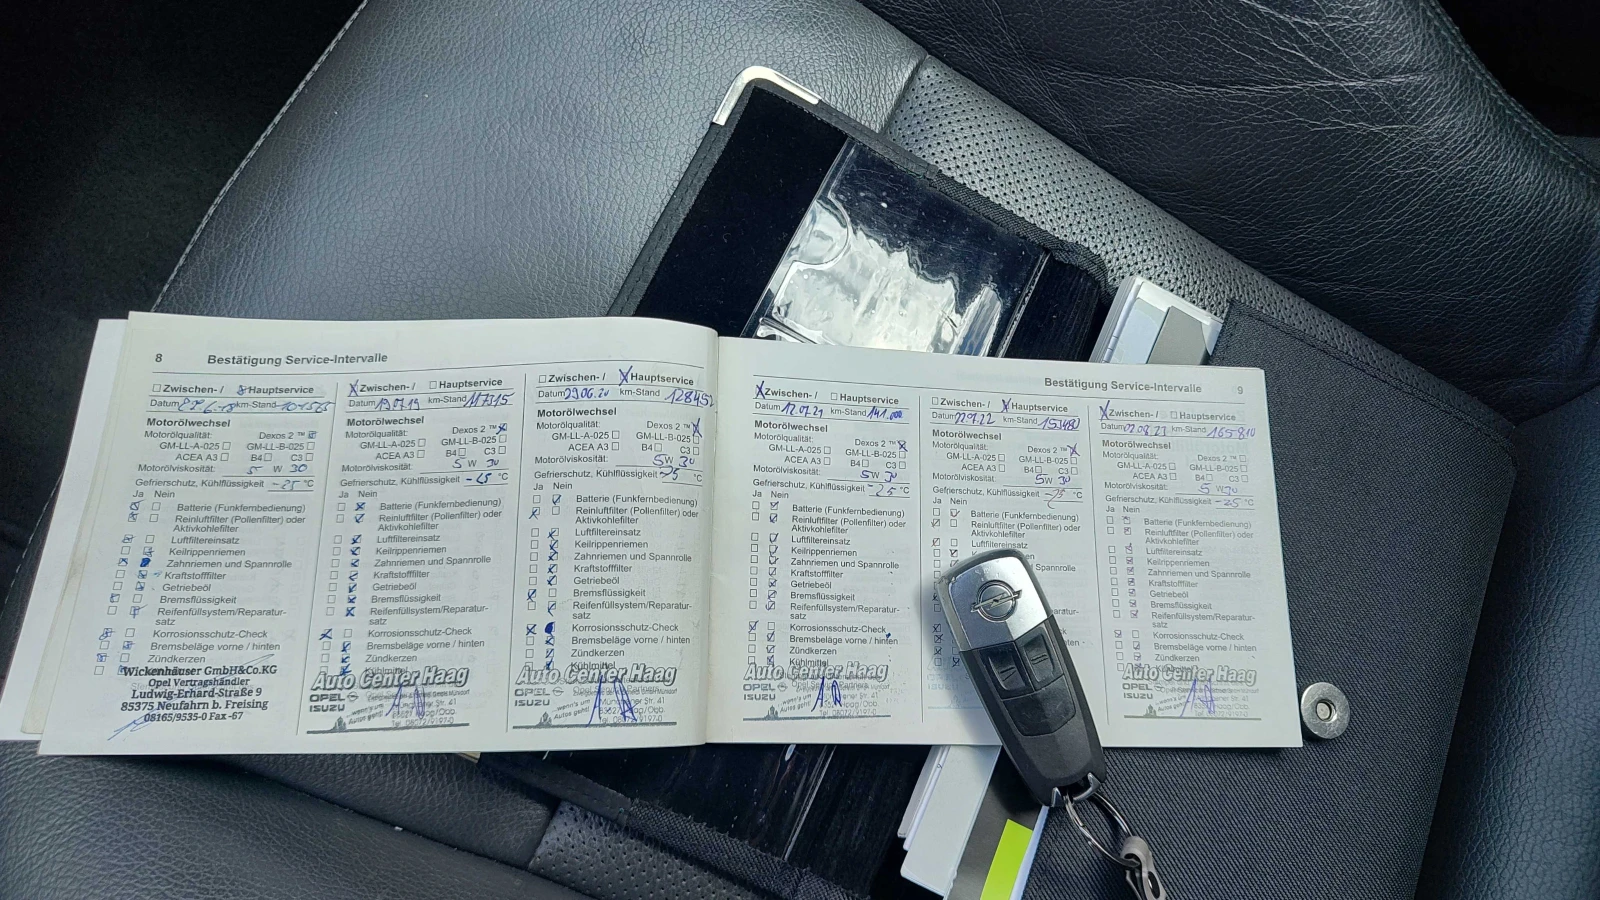 8 Bestätigung Service-Intervalle
☐ Zwischen-/ ☒ Hauptservice
Datum km-Stand
Motorölwechsel
Motorölqualität: Dexos 2 ™ ☒
GM-LL-A-025 ☐ GM-LL-B-025 ☐
ACEA A3 ☐ B4 ☐ C3 ☐
Motorölviskosität: 5 W 30
Gefrierschutz, Kühlflüssigkeit -25 °C
Ja Nein
Batterie (Funkfernbedienung)
Reinluftfilter (Pollenfilter) oder
Aktivkohlefilter
Luftfiltereinsatz
Keilrippenriemen
Zahnriemen und Spannrolle
Kraftstofffilter
Getriebeöl
Bremsflüssigkeit
Reifenfüllsystem/Reparatur-
satz
Korrosionsschutz-Check
Bremsbeläge vorne / hinten
Zündkerzen
Wickenhäuser GmbH&Co.KG
Opel Vertragshändler
Ludwig-Erhard-Straße 9
85375 Neufahrn b. Freising
08165/9535-0 Fax -67
☒ Zwischen-/ ☐ Hauptservice
Datum 19.07.19 km-Stand 117315
Motorölwechsel
Motorölqualität: Dexos 2 ™ ☒
GM-LL-A-025 ☐ GM-LL-B-025 ☐
ACEA A3 ☐ B4 ☐ C3 ☐
Motorölviskosität: 5 W 30
Gefrierschutz, Kühlflüssigkeit -25 °C
Ja Nein
Batterie (Funkfernbedienung)
Reinluftfilter (Pollenfilter) oder
Aktivkohlefilter
Luftfiltereinsatz
Keilrippenriemen
Zahnriemen und Spannrolle
Kraftstofffilter
Getriebeöl
Bremsflüssigkeit
Reifenfüllsystem/Reparatur-
satz
Korrosionsschutz-Check
Bremsbeläge vorne / hinten
Zündkerzen
Kühlmittel
Auto Center Haag
OPEL
ISUZU
☐ Zwischen-/ ☒ Hauptservice
Datum 29.06.20 km-Stand 128452
Motorölwechsel
Motorölqualität: Dexos 2 ™ ☒
GM-LL-A-025 ☐ GM-LL-B-025 ☐
ACEA A3 ☐ B4 ☐ C3 ☐
Motorölviskosität: 5W 30
Gefrierschutz, Kühlflüssigkeit -25 °C
Ja Nein
Batterie (Funkfernbedienung)
Reinluftfilter (Pollenfilter) oder
Aktivkohlefilter
Luftfiltereinsatz
Keilrippenriemen
Zahnriemen und Spannrolle
Kraftstofffilter
Getriebeöl
Bremsflüssigkeit
Reifenfüllsystem/Reparatur-
satz
Korrosionsschutz-Check
Bremsbeläge vorne / hinten
Zündkerzen
Kühlmittel
Auto Center Haag
OPEL
ISUZU
Bestätigung Service-Intervalle 9
☒ Zwischen-/ ☐ Hauptservice
Datum 12.07.21 km-Stand 141.000
Motorölwechsel
Motorölqualität: Dexos 2 ™ ☒
GM-LL-A-025 ☐ GM-LL-B-025 ☐
ACEA A3 ☐ B4 ☐ C3 ☐
Motorölviskosität: 5W 30
Gefrierschutz, Kühlflüssigkeit -25 °C
Ja Nein
Batterie (Funkfernbedienung)
Reinluftfilter (Pollenfilter) oder
Aktivkohlefilter
Luftfiltereinsatz
Keilrippenriemen
Zahnriemen und Spannrolle
Kraftstofffilter
Getriebeöl
Bremsflüssigkeit
Reifenfüllsystem/Reparatur-
satz
Korrosionsschutz-Check
Bremsbeläge vorne / hinten
Zündkerzen
Kühlmittel
Auto Center Haag
OPEL
ISUZU
☐ Zwischen-/ ☒ Hauptservice
Datum km-Stand
Motorölwechsel
Motorölqualität: Dexos 2 ™ ☒
GM-LL-A-025 ☐ GM-LL-B-025 ☐
ACEA A3 ☐ B4 ☐ C3 ☐
Motorölviskosität: 5W 30
Gefrierschutz, Kühlflüssigkeit -25 °C
Ja Nein
Batterie (Funkfernbedienung)
Reinluftfilter (Pollenfilter) oder
Aktivkohlefilter
☒ Zwischen-/ ☐ Hauptservice
Datum km-Stand 165810
Motorölwechsel
Motorölqualität: Dexos 2 ™ ☐
GM-LL-A-025 ☐ GM-LL-B-025 ☐
ACEA A3 ☐ B4 ☐ C3 ☐
Motorölviskosität: 5 W 30
Gefrierschutz, Kühlflüssigkeit -25 °C
Ja Nein
Batterie (Funkfernbedienung)
Reinluftfilter (Pollenfilter) oder
Aktivkohlefilter
Luftfiltereinsatz
Keilrippenriemen
Zahnriemen und Spannrolle
Kraftstofffilter
Getriebeöl
Bremsflüssigkeit
Reifenfüllsystem/Reparatur-
satz
Korrosionsschutz-Check
Bremsbeläge vorne / hinten
Zündkerzen
Auto Center Haag
OPEL
ISUZU